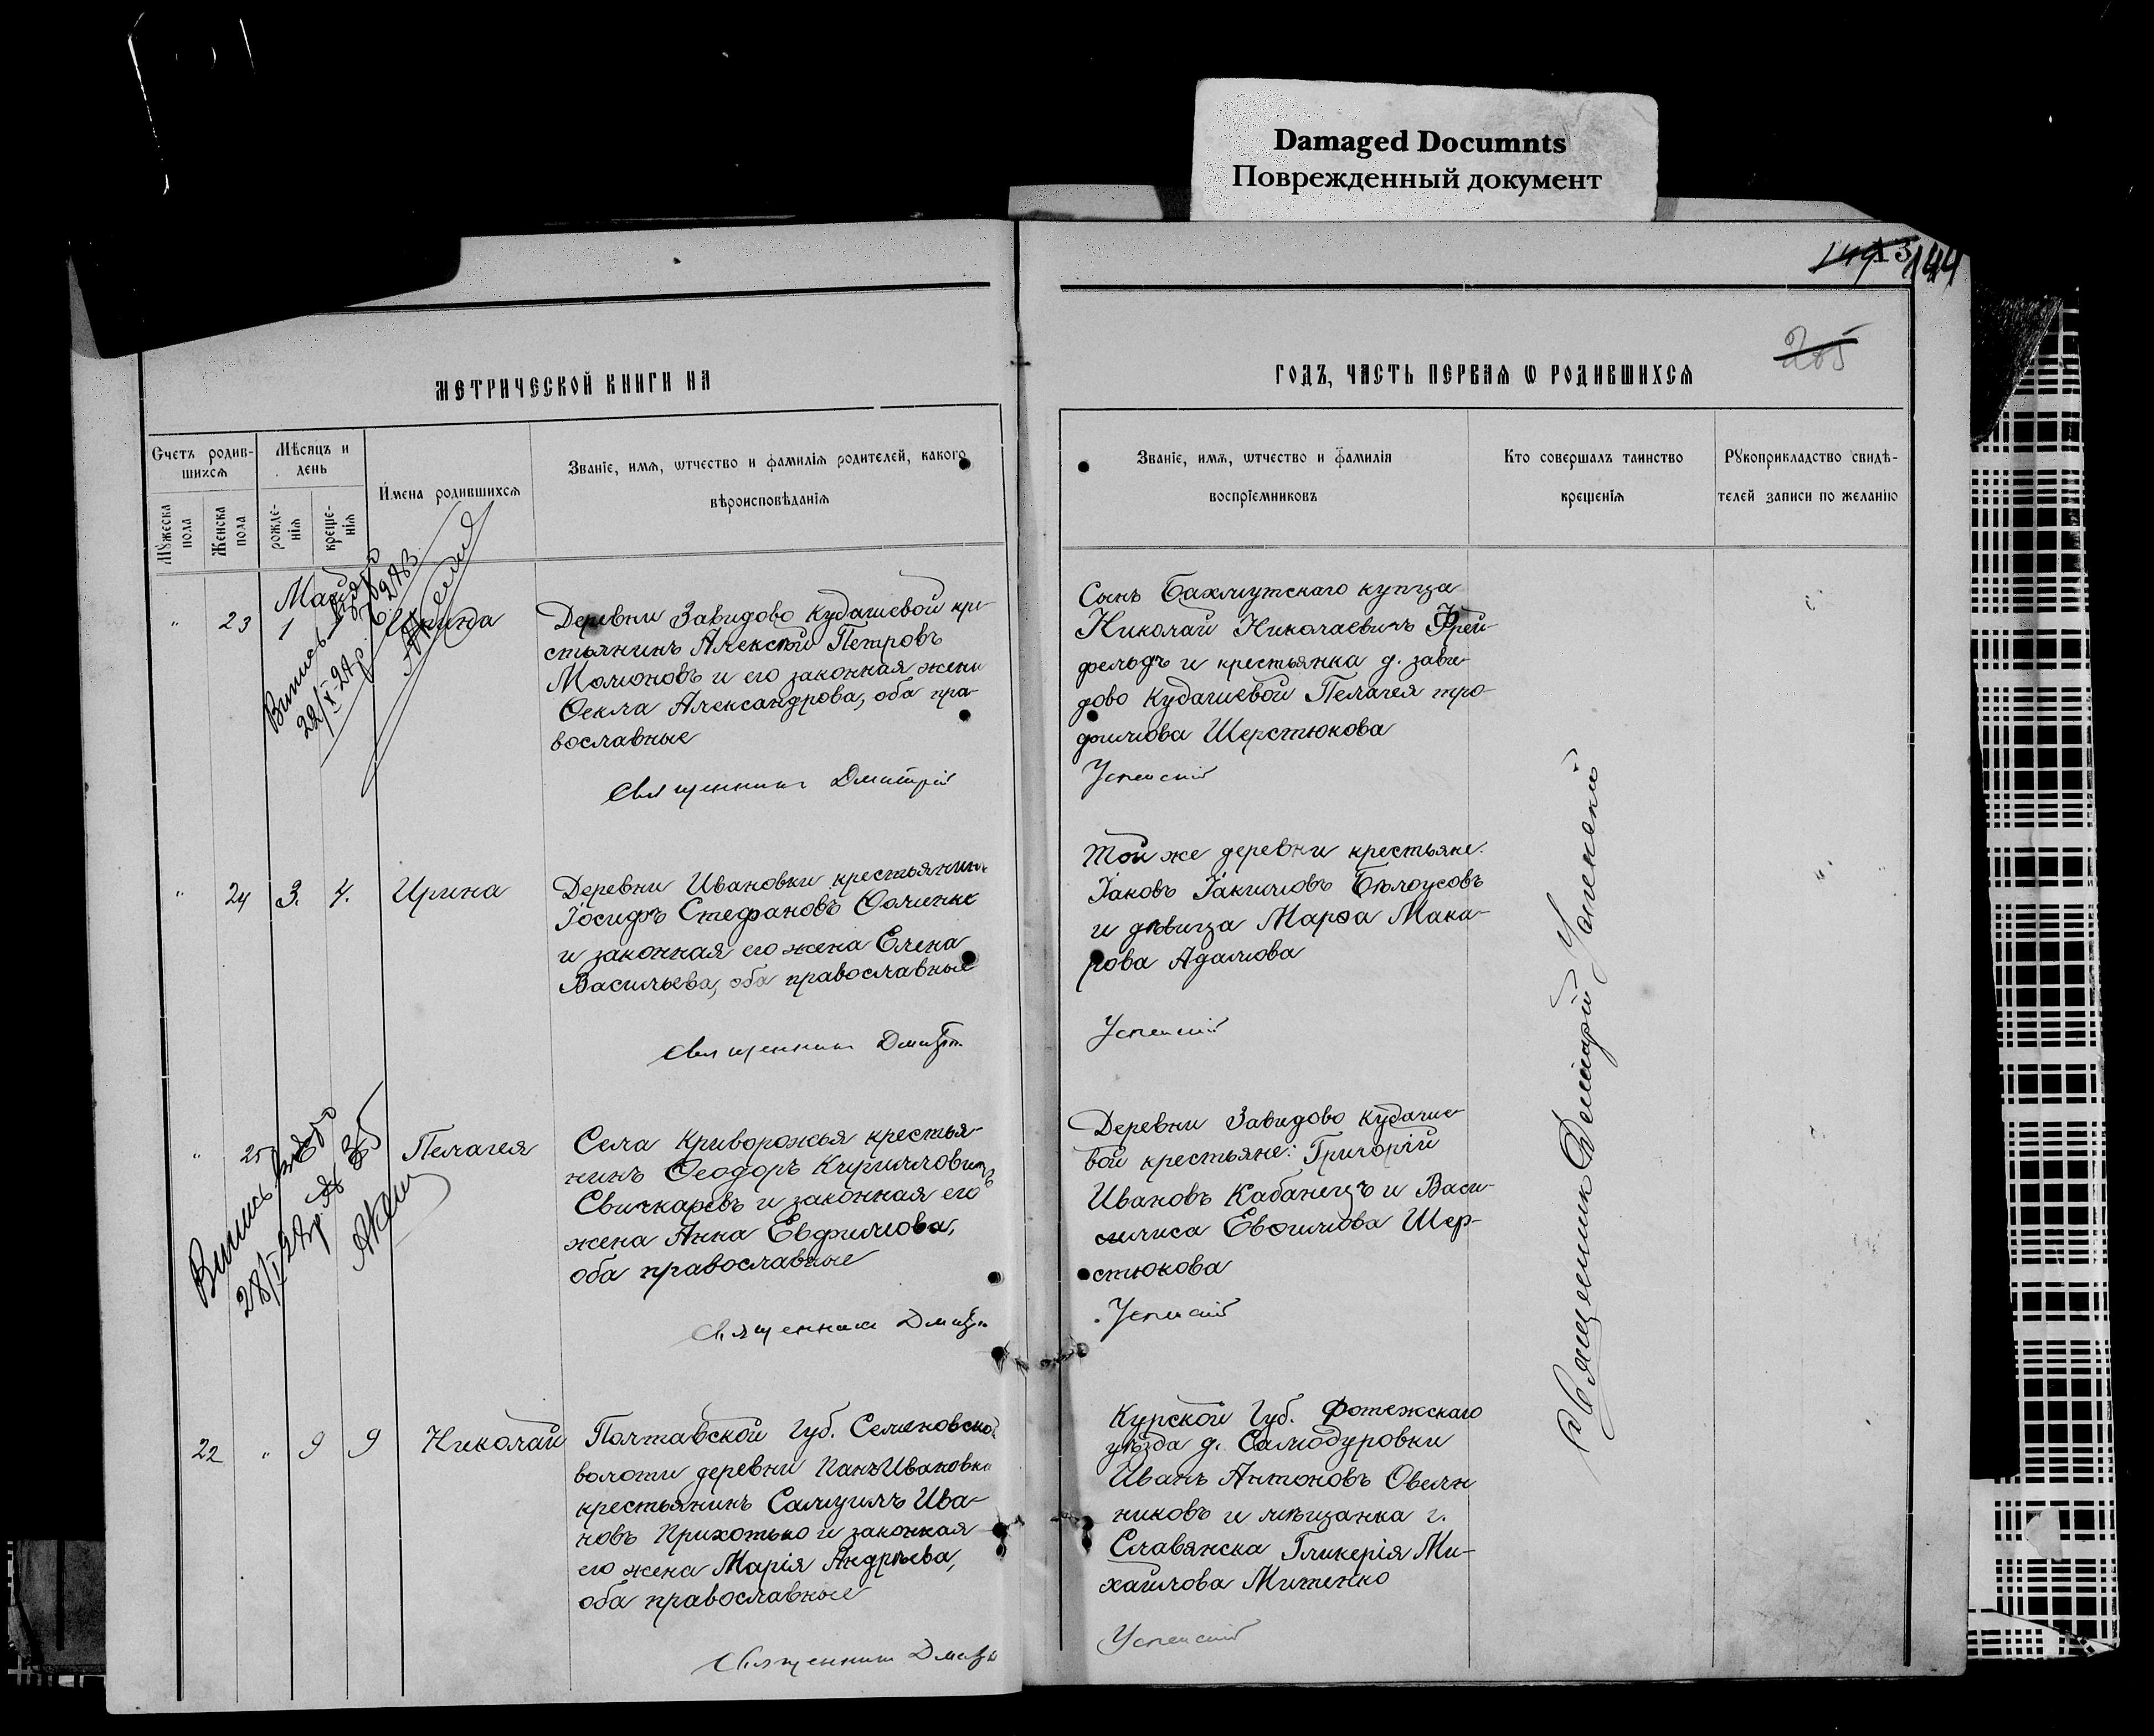 Damaged Documnts
Поврежденный документ
144
205
МЕТРИЧЕСКОЙ КНИГИ НА
ГОДЪ, ЧАСТЬ ПЕРВАЯ Ѡ РОДИВШИХСЯ
Счетъ родив-
шихся
Мѣсяцъ и
день
Мужеска
пола
Женска
пола
рожде-
нія
креще-
нія
Имена родившихся
Званіе, имя, ѡтчество и фамилія родителей, какого
вѣроисповѣданія
Званіе, имя, ѡтчество и фамилія
воспріемниковъ
Кто совершалъ таинство
крещенія
Рукоприкладство свидѣ-
телей записи по желанію
Май
" 23 1
Деревни Завидово Кудашевой кре-
стьянинъ Алексѣй Петровъ
и его законная жена
Ѳекла Александрова, оба пра-
вославные
Священникъ Дмитрій
Сынъ Бахмутскаго купца
Николай Николаевичъ Фрей-
фельдъ и крестьянка д. Зави-
дово Кудашевой Пелагея Тро-
фимова Шерстюкова
Успенскій
" 24 3. 4. Ирина
Деревни Ивановки крестьянинъ
Іосифъ Стефановъ
и законная его жена Елена
Васильева, оба православные
Священникъ Дмитрій
Той же деревни крестьяне:
Іаковъ Іакимовъ Бѣлоусовъ
и дѣвица Марѳа Мака-
рова Адамова
Успенскій
" 25 Пелагея
Села Криворожья крестья-
нинъ Ѳеодоръ Кирилловичъ
Свичкаревъ и законная его
жена Анна Евфимова,
оба православные
Священникъ Дмитрій
Деревни Завидово Кудаше-
вой крестьяне: Григорій
Ивановъ Кабанецъ и Васи-
лиса Евѳимова Шер-
стюкова
Успенскій
22 " 9 9 Николай
Полтавской Губ. Семеновской
волости деревни ПанъИвановки
крестьянинъ Самуилъ Ива-
новъ Прихотько и законная
его жена Марія Андрѣева,
оба православные
Священникъ Дмитрій
Курской Губ. Фотежскаго
уѣзда д. Самодуровки
Иванъ Антоновъ Овсян
никовъ и мѣщанка г.
Славянска Гликерія Ми-
хайлова Митенко
Успенскій
Священникъ Димитрій Успенскій